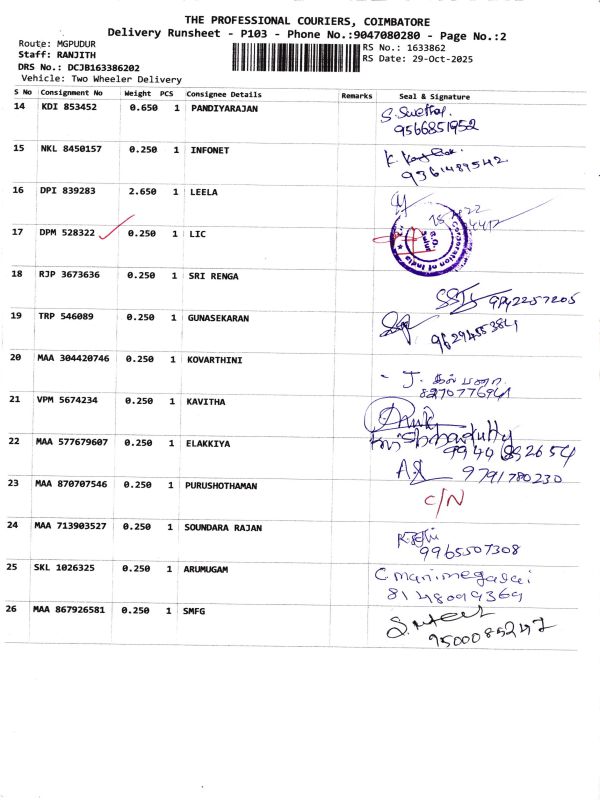 THE PROFESSIONAL COURIERS, COIMBATORE
Delivery Runsheet - P103 - Phone No.:9047080280 - Page No.:2
Route: MGPUDUR
Staff: RANJITH
DRS No.: DCJB163386202
Vehicle: Two Wheeler Delivery
RS No.: 1633862
RS Date: 29-Oct-2025
S No Consignment No Weight PCS Consignee Details Remarks Seal & Signature
14 KDI 853452 0.650 1 PANDIYARAJAN
9566851952
15 NKL 8450157 0.250 1 INFONET
9361489542
16 DPI 839283 2.650 1 LEELA
17 DPM 528322 0.250 1 LIC
Corporation of India
18 RJP 3673636 0.250 1 SRI RENGA
19 TRP 546089 0.250 1 GUNASEKARAN
20 MAA 304420746 0.250 1 KOVARTHINI
J. கல்பனா
21 VPM 5674234 0.250 1 KAVITHA
22 MAA 577679607 0.250 1 ELAKKIYA
9791780230
23 MAA 870707546 0.250 1 PURUSHOTHAMAN
C/N
24 MAA 713903527 0.250 1 SOUNDARA RAJAN
9965507308
25 SKL 1026325 0.250 1 ARUMUGAM
C. Manimegalai
8148099369
26 MAA 867926581 0.250 1 SMFG
9500085247